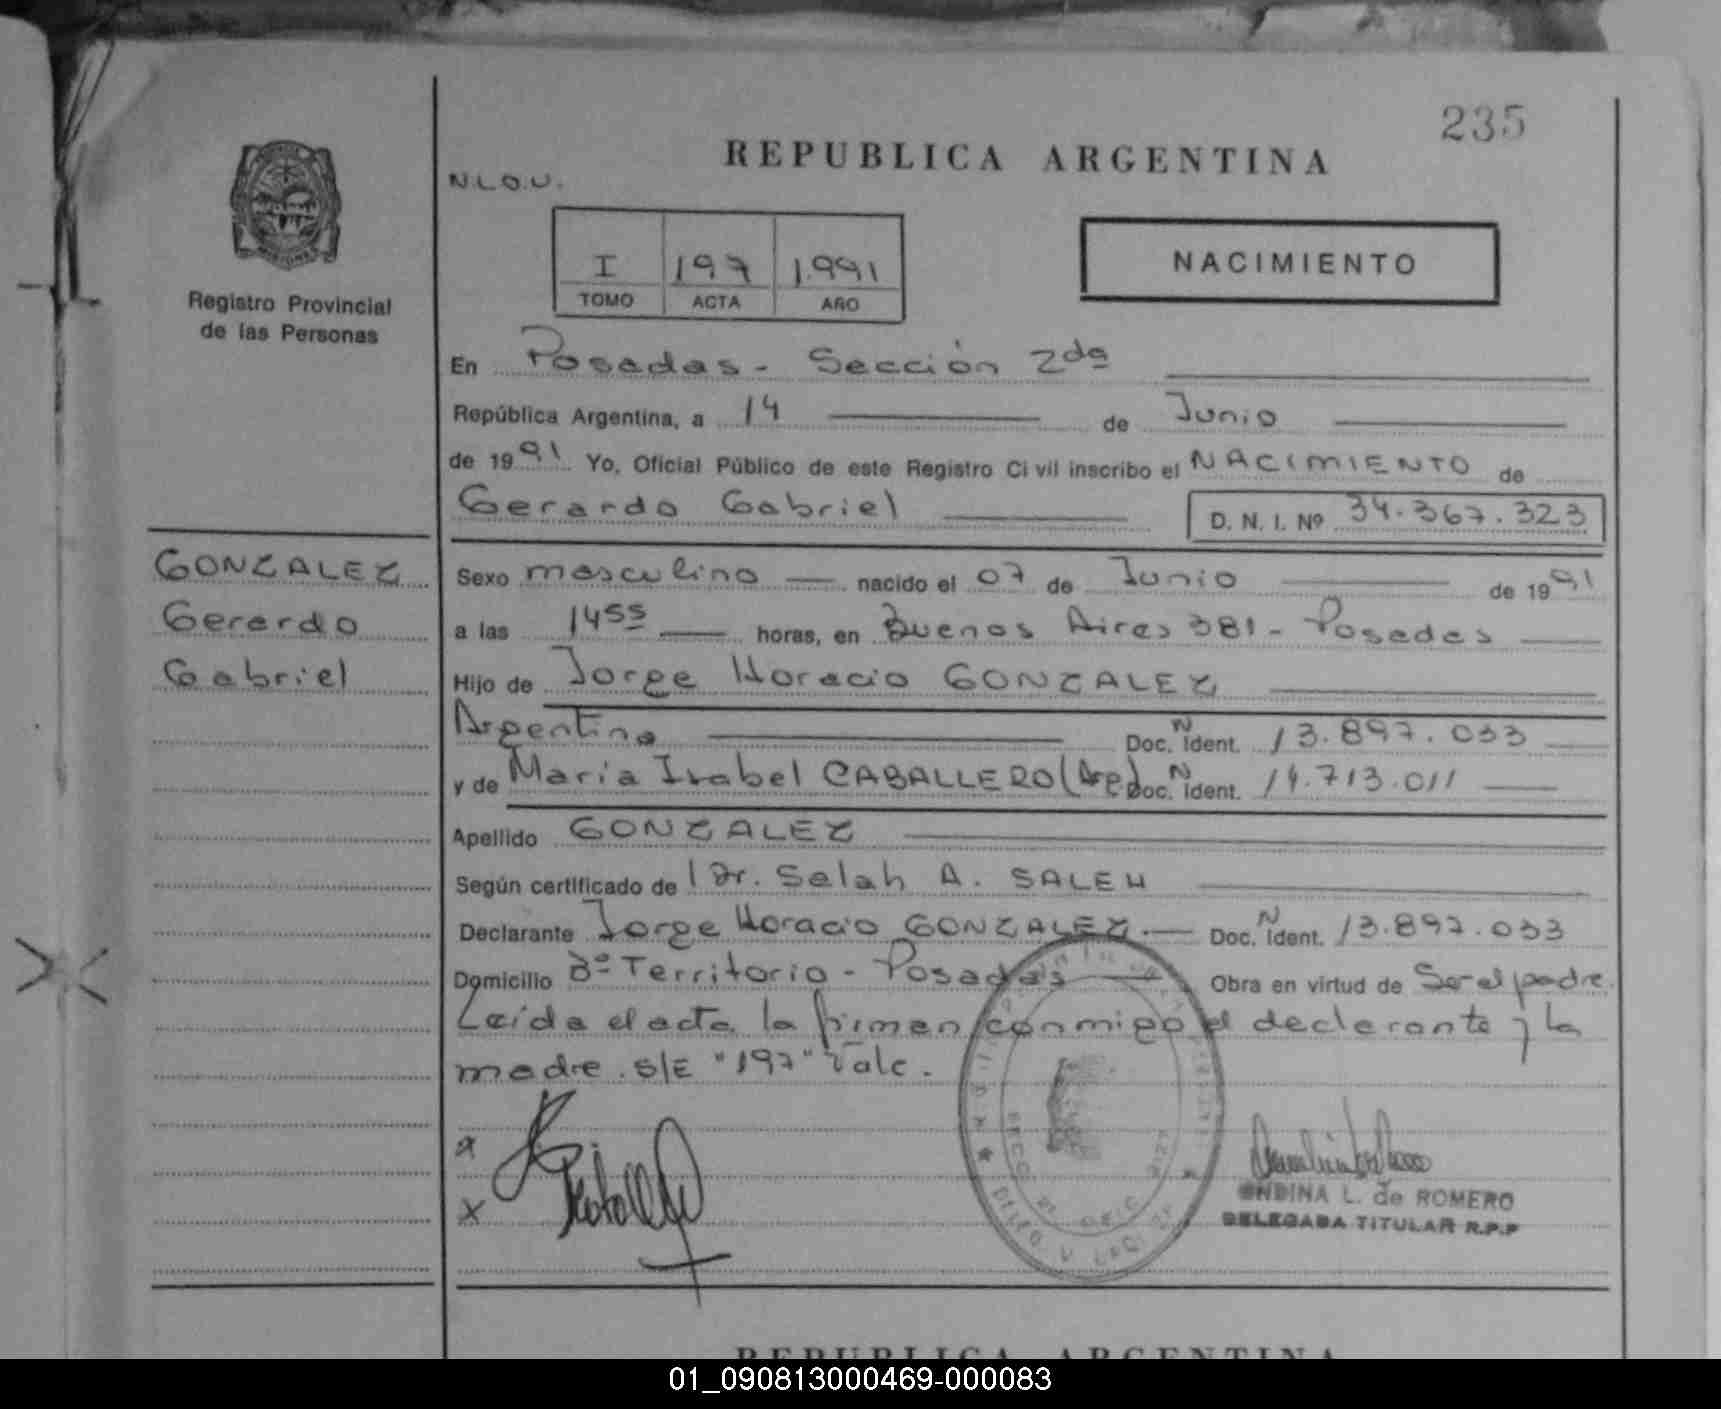 235
REPUBLICA ARGENTINA
N.L.O.U.
I 197 1.991
TOMO ACTA AÑO
NACIMIENTO
Registro Provincial
de las Personas
En Posadas - Sección 2da
República Argentina, a 14 de Junio
de 1991 Yo, Oficial Público de este Registro Civil inscribo el NACIMIENTO de
Gerardo Gabriel D. N. I. Nº 34.367.323
GONZALEZ
Gerardo
Gabriel
Sexo masculino nacido el 07 de Junio de 1991
a las 1455 horas, en Buenos Aires 381 - Posadas
Hijo de Jorge Horacio GONZALEZ
Argentino Doc. N Ident. 13.897.033
y de María Isabel CABALLERO (Arg) Doc. N Ident. 14.713.011
Apellido GONZALEZ
Según certificado de Dr. Salah A. SALEH
Declarante Jorge Horacio GONZALEZ.— Doc. N Ident. 13.897.033
Domicilio 3º Territorio - Posadas Obra en virtud de Ser el padre.
Leída el acta la firman conmigo el declarante y la
madre. S/E "197" Vale.
x
x
ONDINA L. de ROMERO
DELEGADA TITULAR R.P.P
REPUBLICA ARGENTINA
01_090813000469-000083